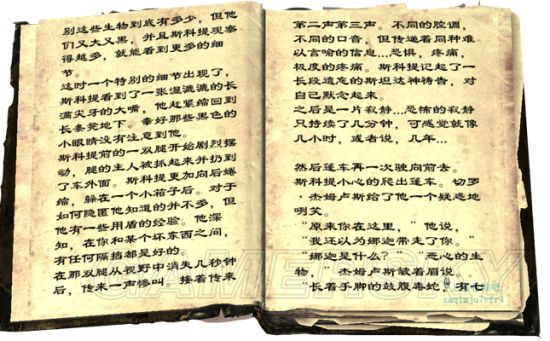 别这些生物到底有多少，但他
们又大又黑，并且斯科提观察
得越多，就能看到更多的细
节。
这时一个特别的细节出现了，
斯科提看到了一张湿漉漉的长
满尖牙的大嘴，他赶紧缩回到
长条凳地下。幸好那些黑色的
小眼睛没有注意到他。
斯科提前的一双腿开始剧烈摆
动，腿的主人被抓起来并扔到
了车外面。斯科提更加向后蜷
缩，躲在一个小箱子后。对于
如何隐匿他知道的并不多，但
他有一些用盾的经验。他深
知，在你和某个坏东西之间，
有任何隔挡都是好的。
在那双腿从视野中消失几秒钟
后，传来一声惨叫。接着传来
第二声第三声。不同的腔调，
不同的口音，但传递着同种难
以言喻的信息…恐惧，疼痛，
极度的疼痛。斯科提记起了一
长段遗忘的斯坦达神祷告，对
自己默念起来。
之后是一片寂静…恐怖的寂静
只持续了几分钟，可感觉就像
几小时，或者说，几年…
然后蓬车再一次驶向前去。
斯科提小心的爬出蓬车。切罗
·杰姆卢斯给了他一个疑惑地
咧笑。
“原来你在这里，”他说，
“我还以为娜迦带走了你。”
“娜迦是什么？”“恶心的生
物，”杰姆卢斯皱着眉说。
“长着手脚的鼓腹毒蛇，有七
GAMERSKY
zaqimju7vfr4